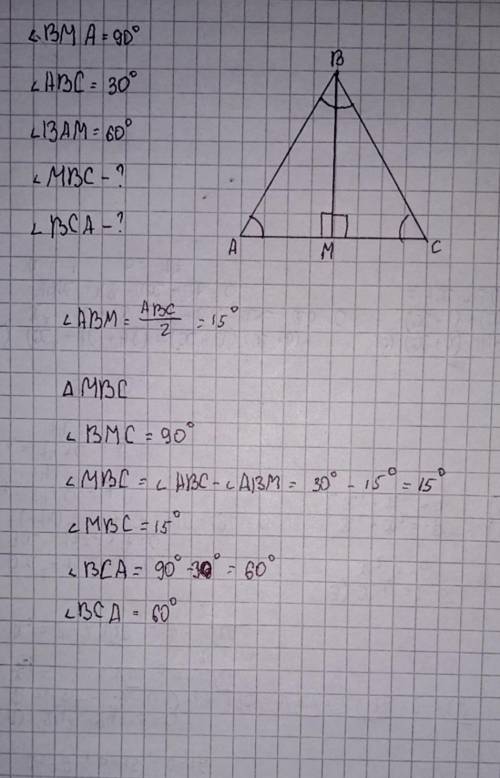 ∠BMA = 90°
∠ABC = 30°
∠BAM = 60°
∠MBC - ?
∠BCA - ?
B
A
M
C
∠ABM = ABC/2 = 15°
△ MBC
∠BMC = 90°
∠MBC = ∠ABC - ∠ABM = 30° - 15° = 15°
∠MBC = 15°
∠BCA = 90° - 30° = 60°
∠BCA = 60°